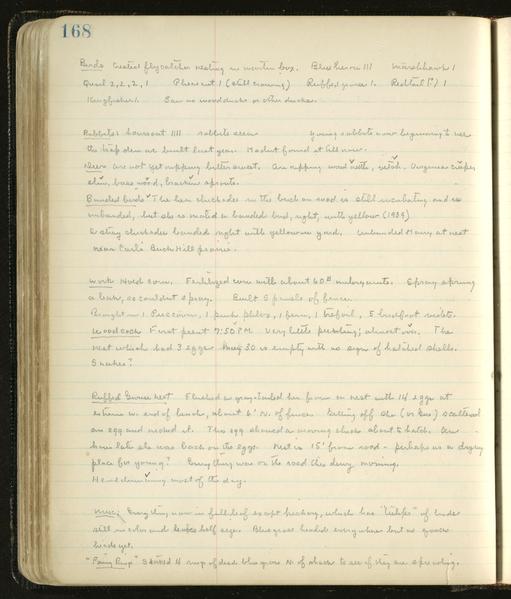 168
Birds Crested flycatcher nesting in martin box. Blue heron 111 Marshhawk 1
Quail 2, 2, 2, 1 Pheasant 1 (still crowing) Ruffed grouse 1. Redtail (?) 1
Kingfisher 1. Saw no wood ducks or other ducks.
Rabbits: 1111 rabbits seen young rabbits now beginning to use
the we built last year. Hadn't found it till now.
Deer are not yet nipping bittersweet. Are nipping wood nettle, vetch, Virginia creeper
elm, basswood, bracken sprouts.
Banded birds The hen chickadee in the birch on road is still incubating and is
unbanded, but she is mated to banded bird, right, with yellow (1939)
chickadee banded right with yellow in yard. Unbanded at nest
near Curly Buck Hill prairie.
Work Hoed corn. Fertilized corn with about 60# . Spray spring
a leak, so couldn't spray. Built 5 panels of fence.
Brought in 1 , 1 pink phlox, 1 fern, 1 trefoil, 5 birdfoot violets.
Woodcock First peent 7:50 PM Very little peenting; almost over. The
nest which had 3 eggs May 30 is empty with no sign of hatched shells.
Snakes?
Ruffed Grouse Nest Flushed a gray-tailed hen from a nest with 14 eggs at
extreme w. end of , about 6' N. of fence. Getting off she (or Gus) scattered
an egg and necked it. This egg showed a moving chick about to hatch. An
hour later she was back on the eggs. Nest is 15' from road - perhaps as a drying
place for young? Gray they was on the road this dewy morning.
Hen drumming most of the day.
Misc: Everything now in full leaf except hickory, which has "tulips" of buds
still in color and leaves half size. Bluegrass headed everywhere but no quack
heads yet.
" " Staked 4 rings of dead blue grass N. of shack to see if they are spreading.